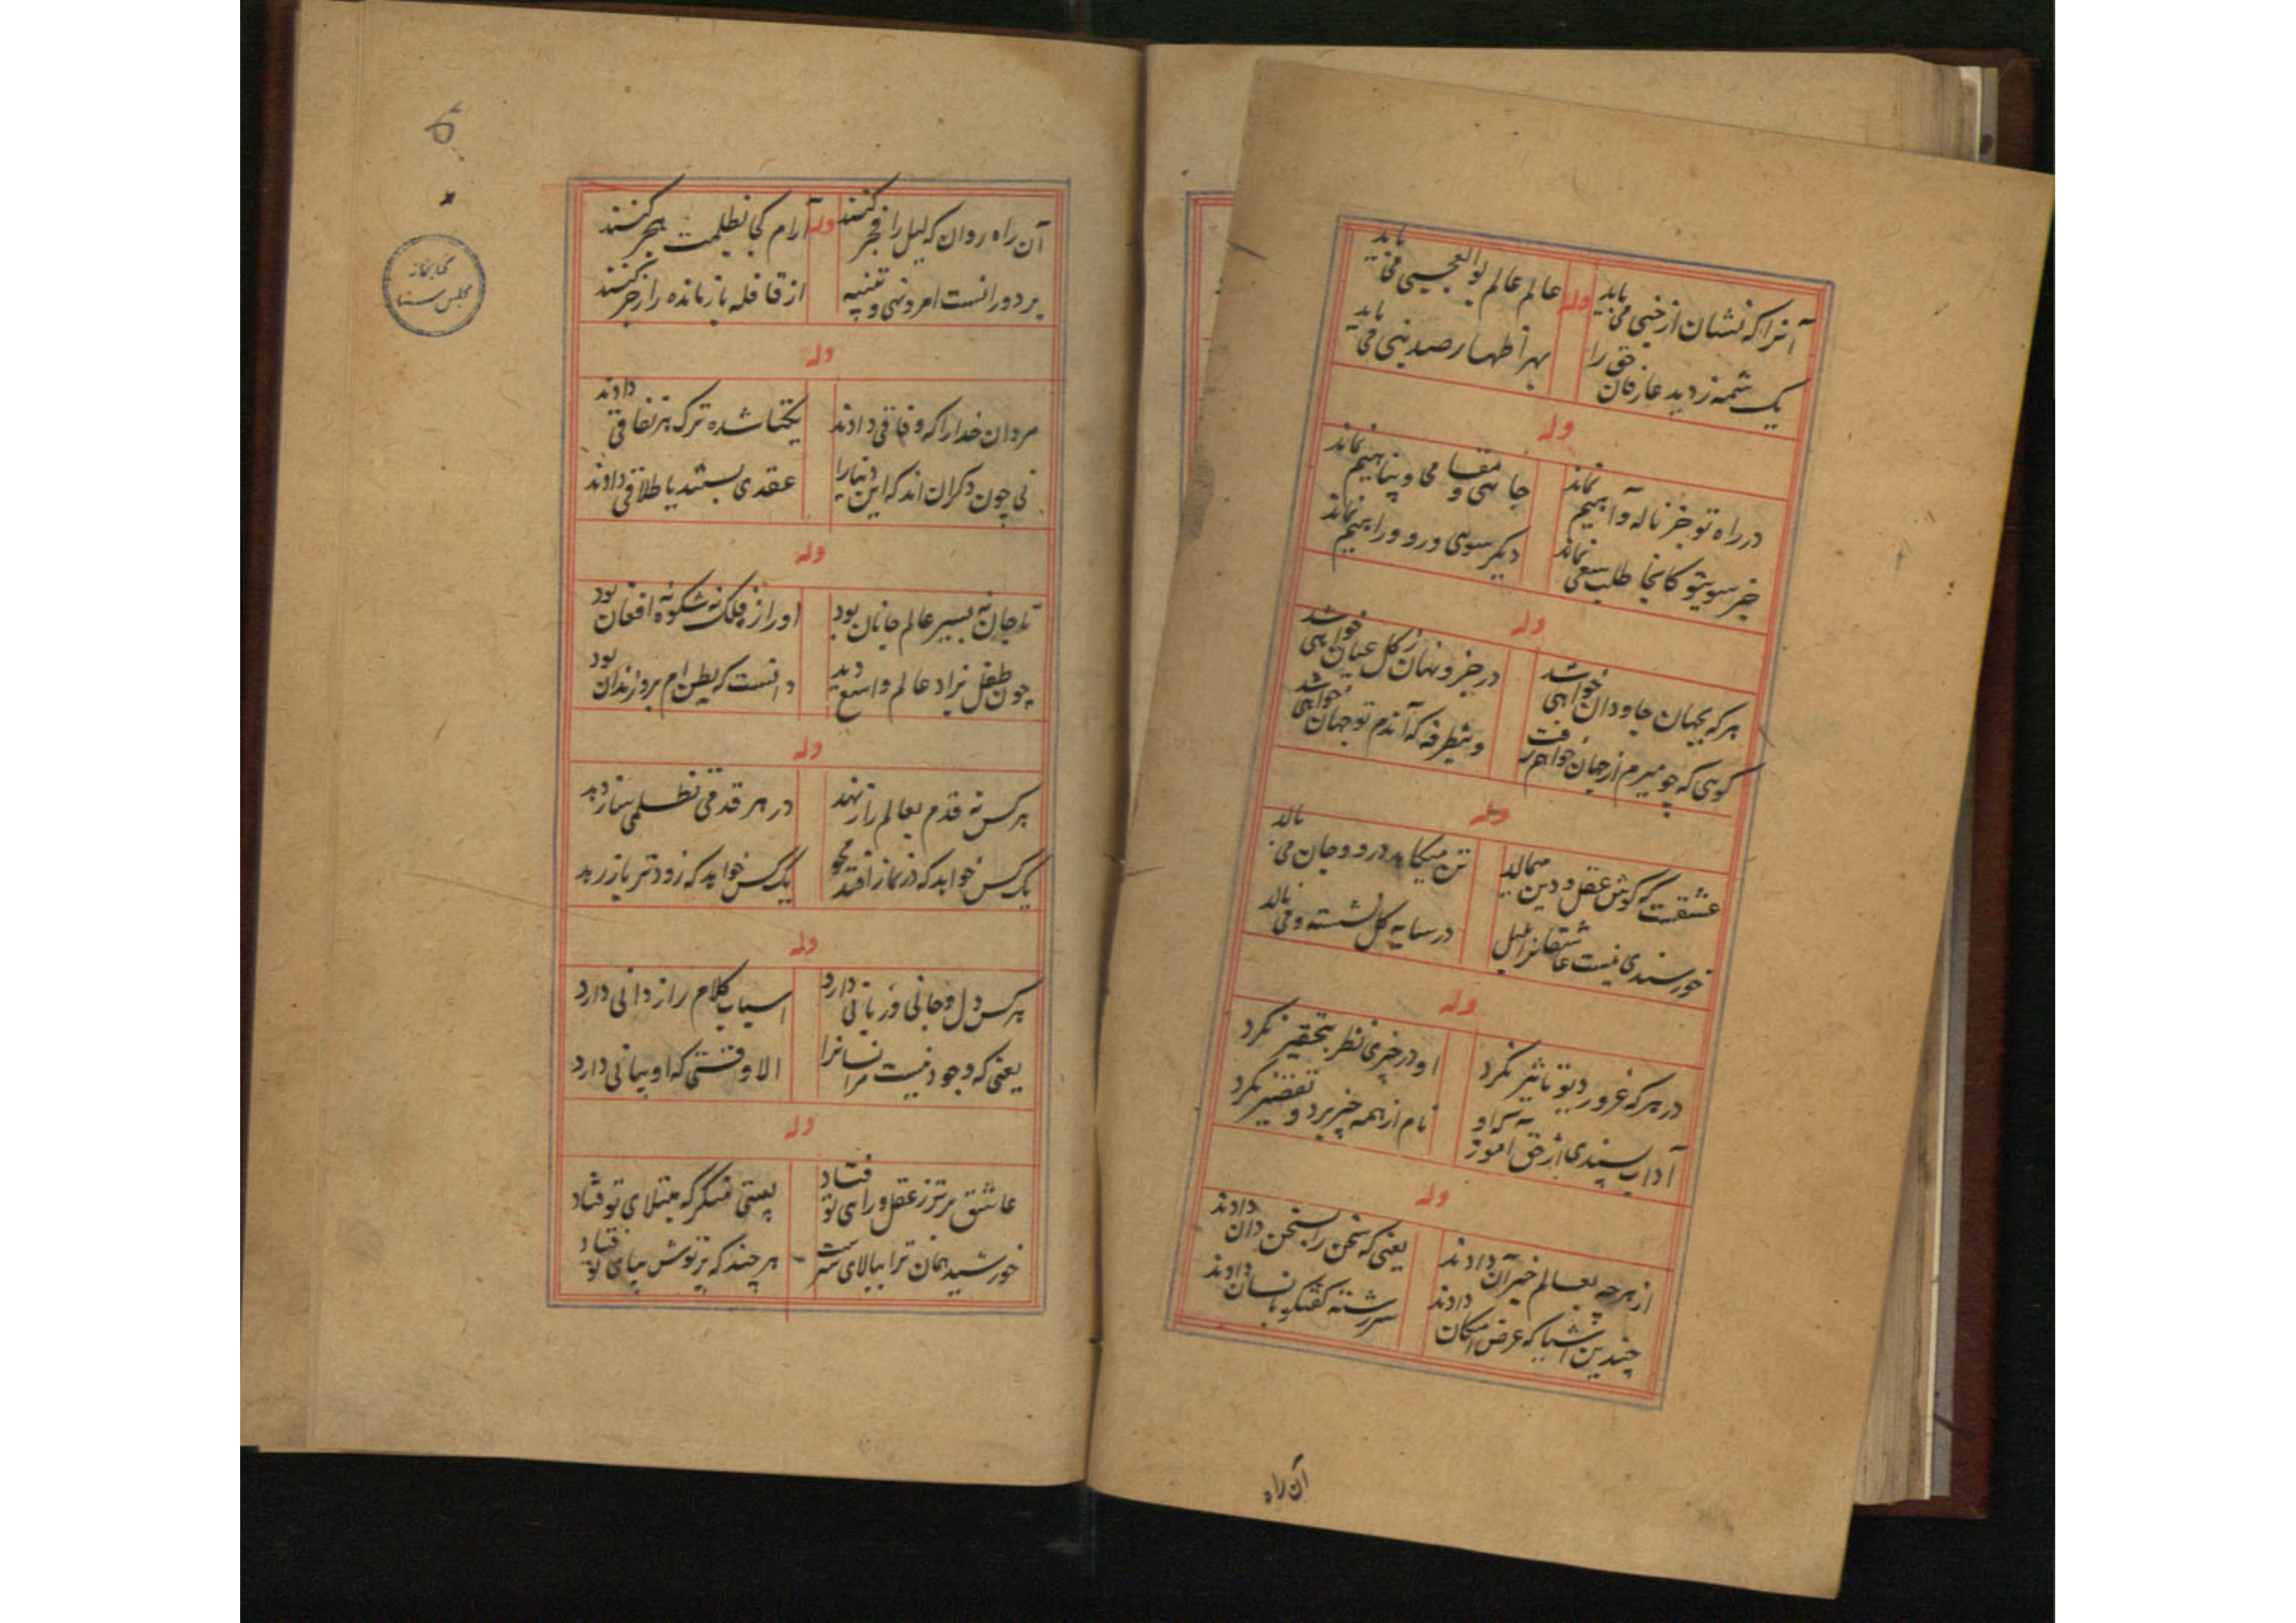 آنرا که نشان از خبی می یابد وله عالم عالم بوالعجبی می یابد
یک شمه ز دید عارفان حق را بهر اظهار صد نبی می یابد
وله
در راه تو جز ناله و آهیم نماند جاهی و مقامی و پناهیم نماند
جز سوی تو کانجا طلب سعی نماند دیگر سوی و رو و راهیم نماند
وله
هر که بجهان جاودان خواهی شد در جز و نهان ز کل عیان خواهی شد
گوی که چو میرم از جهان خواهم رفت وینطرفه که آندم تو جهان خواهی شد
وله
عشقت که گوش عقل و دین میمالد تن میکاهد درو و جان می بالد
خورسندی نیست عاشقانرا بلبل در سایه گل نشسته و می نالد
وله
در هر که غرور دیو تاثیر نکرد او در چیزی نظر بتحقیر نکرد
آداب پسندی از حق آموز که او نام از همه چیز برد و تقصیر نکرد
وله
از هر چه بعالم خبر آن دادند یعنی که سخن را بسخن دان دادند
چندین اشیا که عرض امکان دادند سررشته گفتگو بانسان دادند
آن راه
۵
کتابخانه
مجلس سنا
آن راه روان که لیل را فجر کنند وله آرام کجا بظلمت هجر کنند
بر دورانست امر و نهی و تنبیه از قافله باز مانده را زجر کنند
وله
مردان خدا را که وفاقی دادند یکتا شده ترک هر نفاقی دادند
نی چون دگران اند که این دنیا را عقدی بستند یا طلاقی دادند
وله
تا جان نه بسیر عالم جانان بود او را ز فلک نه شکوه نه افغان بود
چون طفل بزاد عالم واسع دید دانست که بطن ام برو زندان بود
وله
هر کس نه قدم بعالم راز نهد در هر قدمی نظلمی ساز دهد
یک کس خواهد که در نماز افتد محو یک کس خواهد که زودتر باز رهد
وله
هر کس دل و جانی و زبانی دارد اسباب کلام راز دانی دارد
یعنی که وجود نیست مر انسانرا الا وقتی که او بیانی دارد
وله
عاشق برتر ز عقل و رای تو فتاد پستی منگر که مبتلای تو فتاد
خورشید همان ترا ببالای سرست هر چند که پرتوش بپای تو فتاد